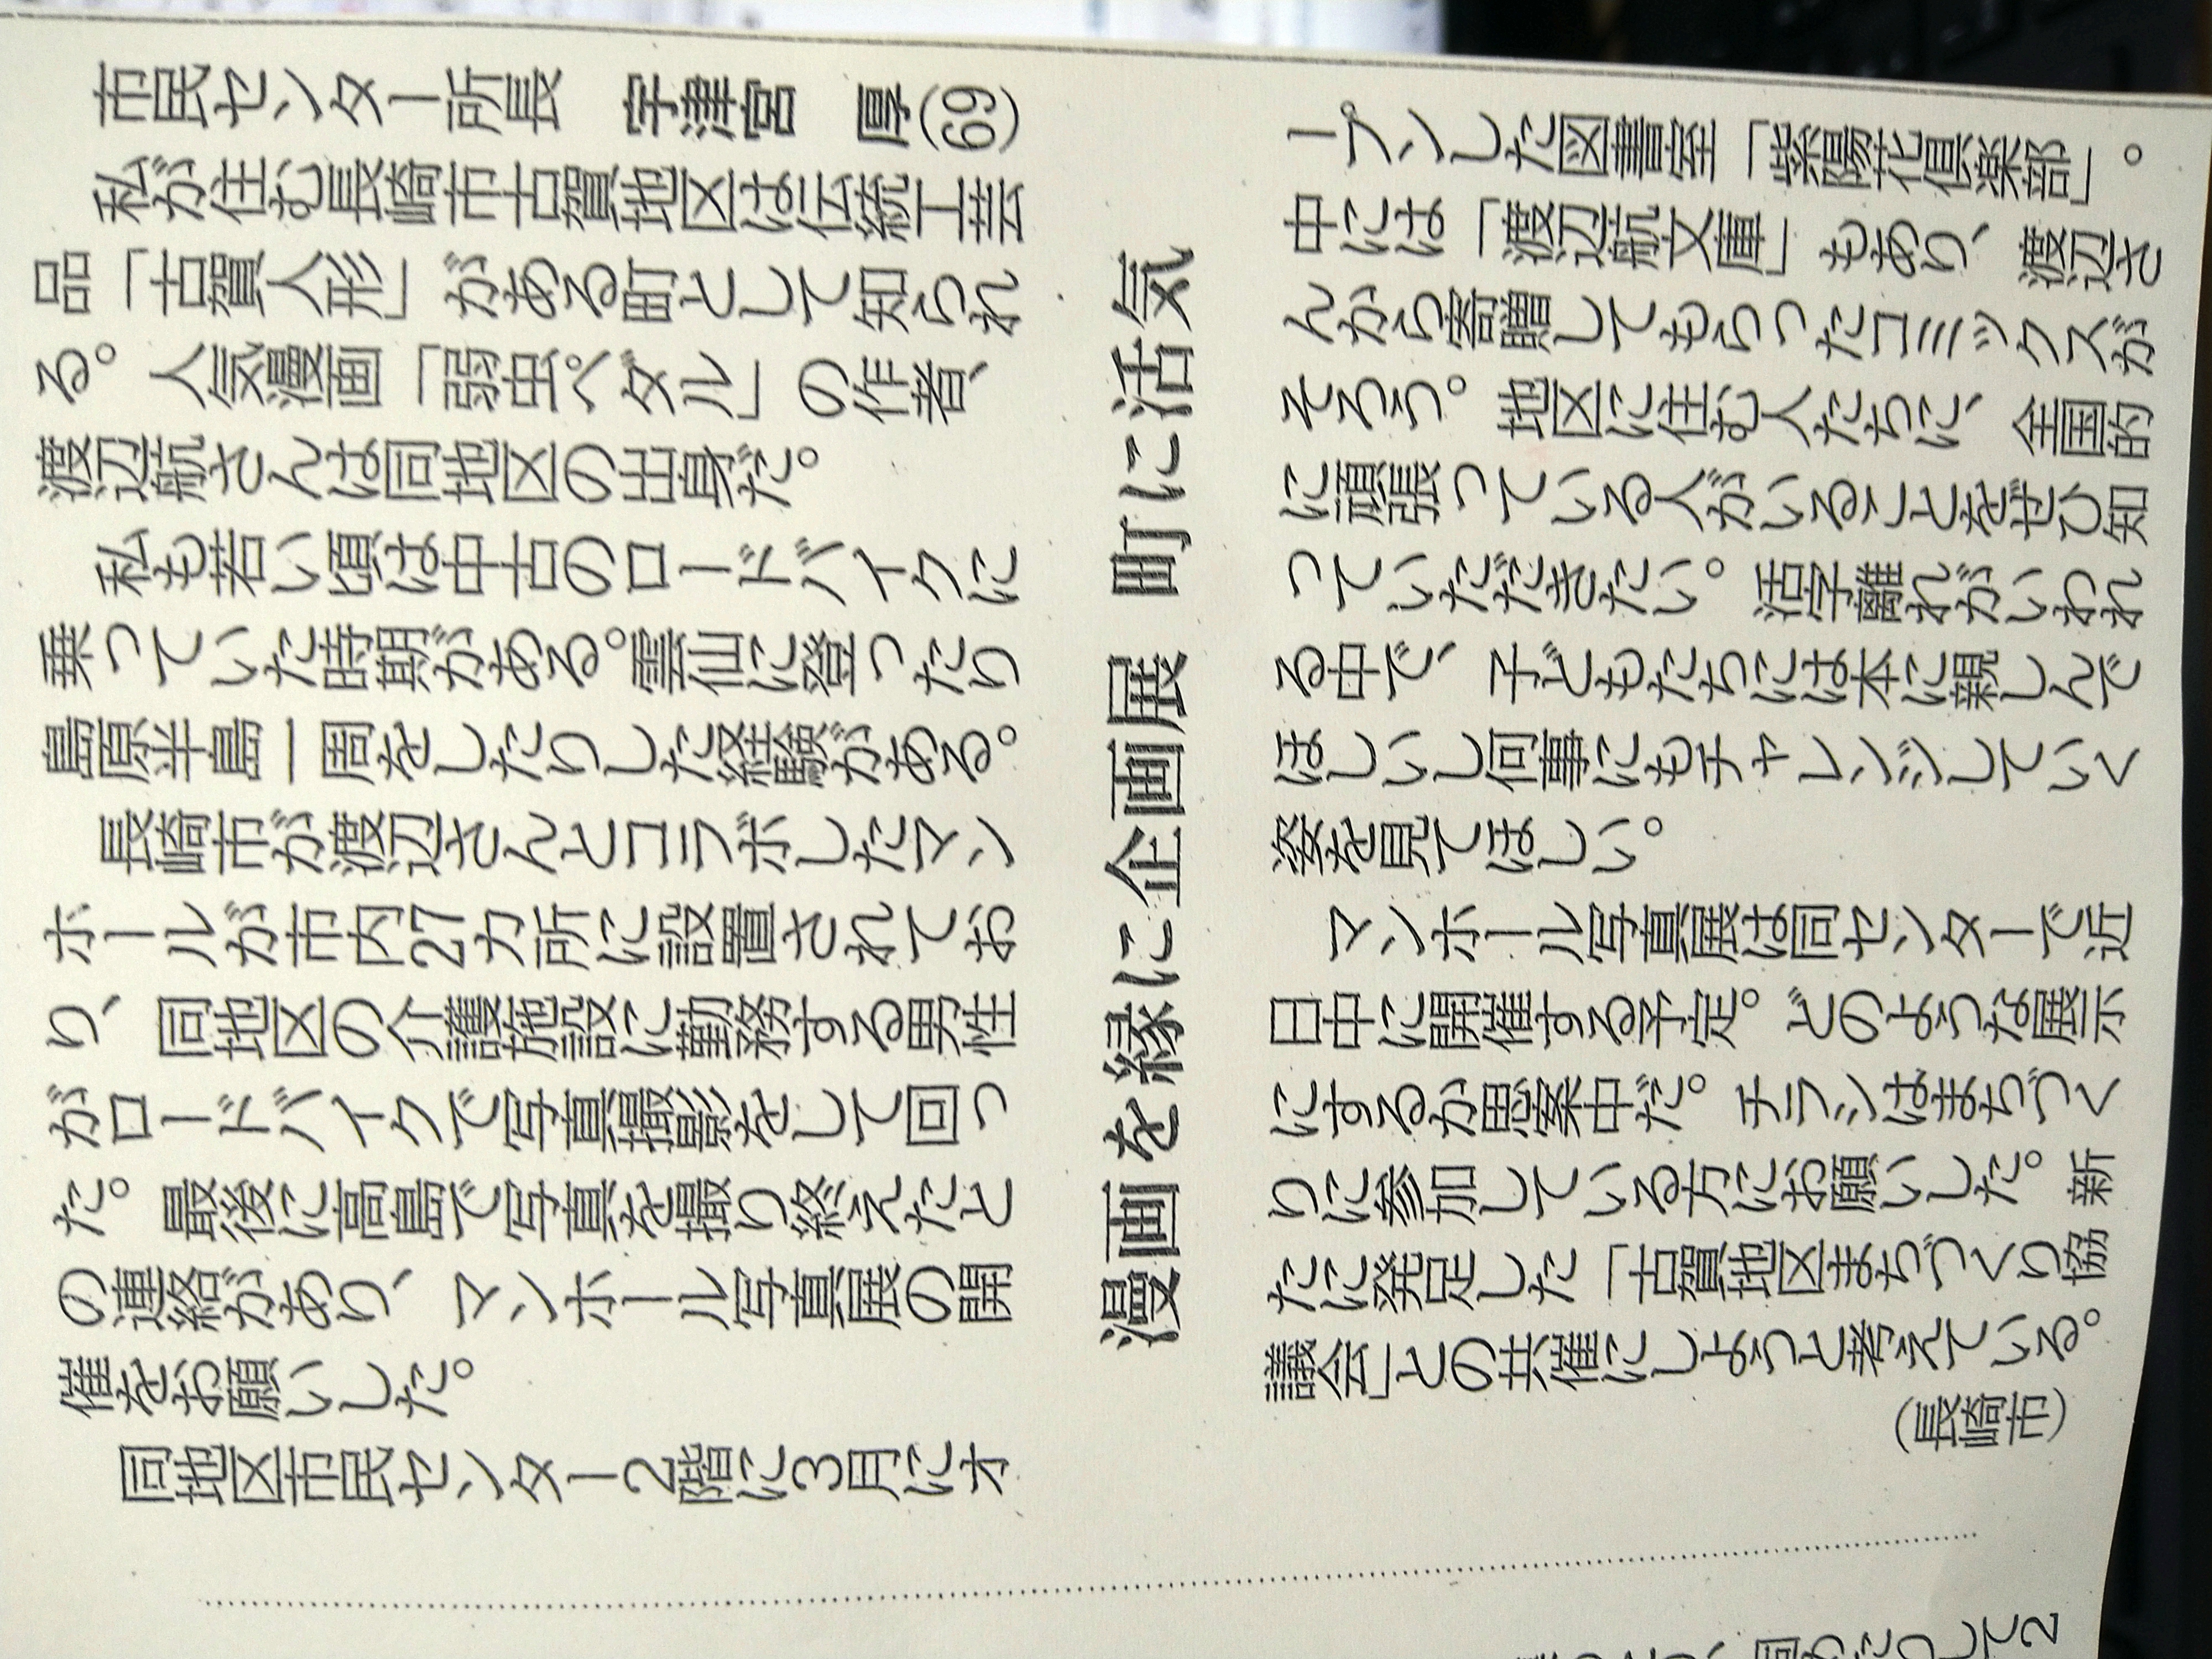 漫画を縁に企画展 町に活気
市民センター所長 宇津宮 厚(69)
私が住む長崎市古賀地区は伝統工芸
品「古賀人形」がある町として知られ
る。人気漫画「弱虫ペダル」の作者、
渡辺航さんは同地区の出身だ。
私も若い頃は中古のロードバイクに
乗っていた時期がある。雲仙に登ったり
島原半島一周をしたりした経験がある。
長崎市が渡辺さんとコラボしたマン
ホールが市内27カ所に設置されてお
り、同地区の介護施設に勤務する男性
がロードバイクで写真撮影をして回っ
た。最後に高島で写真を撮り終えたと
の連絡があり、マンホール写真展の開
催をお願いした。
同地区市民センター2階に3月にオ
ープンした図書室「紫陽花倶楽部」。
中には「渡辺航文庫」もあり、渡辺さ
んから寄贈してもらったコミックスが
そろう。地区に住む人たちに、全国的
に頑張っている人がいることをぜひ知
っていただきたい。活字離れがいわれ
る中で、子どもたちには本に親しんで
ほしいし何事にもチャレンジしていく
姿を見てほしい。
マンホール写真展は同センターで近
日中に開催する予定。どのような展示
にするか思案中だ。チラシはまちづく
りに参加している方にお願いした。新
たに発足した「古賀地区まちづくり協
議会」との共催にしようと考えている。
(長崎市)